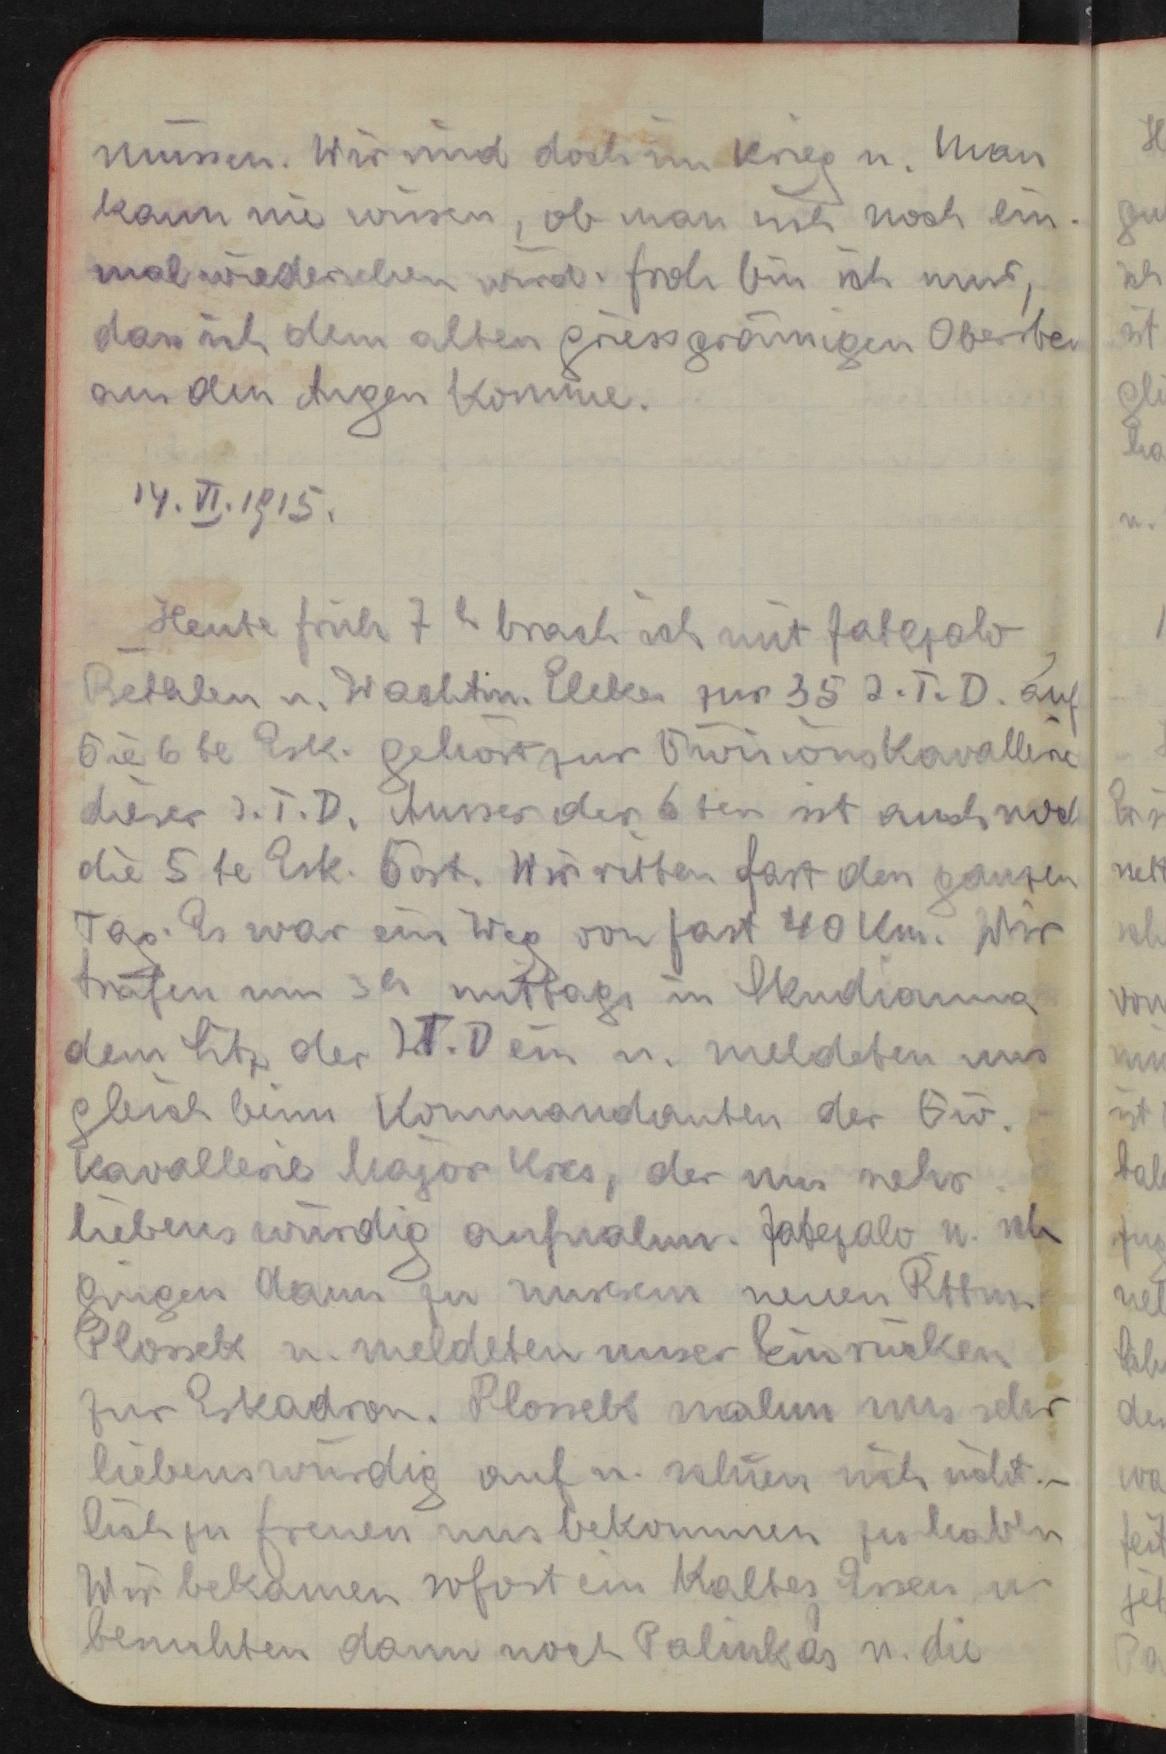 müssen. Wir sind doch im Krieg u. Man
kann nie wissen, ob man sich noch ein-
mal wiedersehen wird. froh bin ich nur,
dass ich dem alten griessgrämigen Obersten
aus den Augen komme.
14. VI. 1915.
Heute früh 7 h brach ich mit
Bethlen u. Wachtm. Elekes zur 35 I. T. D. auf
Die 6 te Esk. gehört zur Divisionskavallerie
dieser I. T. D. Ausser der 6 ten ist auch noch
die 5 te Esk. Dort. Wir ritten fast den ganzen
Tag. Es war ein Weg von fast 40 Km. Wir
trafen um 3h mittags in
dem Sitz der I.T.D ein u. meldeten uns
gleich beim Kommandanten der Div.
Kavallerie Major , der uns sehr
liebenswürdig aufnahm. u. ich
gingen dann zu unserem neuen Rttm.
Plossek u. meldeten unser Einrücken
zur Eskadron. Plossek nahm uns sehr
liebenswürdig auf u. schien sich sicht-
lich zu freuen uns bekommen zu haben
Wir bekamen sofort ein Kaltes Essen u
besuchten dann noch Palinkás u. die